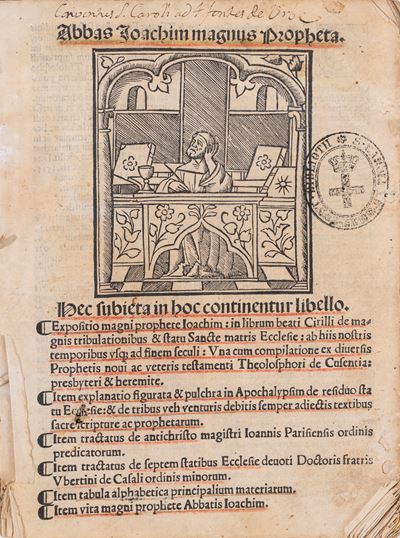 Conventus S. Caroli ad 4 fontes de Urbe
Abbas Ioachim magnus Propheta.
Hec subiecta in hoc continentur libello.
¶Expositio magni prophete Ioachim: in librum beati Cirilli de ma-
gnis tribulationibus & statu Sancte matris Ecclesie: ab hiis nostris
temporibus vsq; ad finem seculi: Una cum compilatione ex diuersis
Prophetis noui ac veteris testamenti Theolosphori de Cusentia:
presbyteri & heremite.
¶Item explanatio figurata & pulchra in Apochalypsim de residuo sta
tu Ecclesie: & de tribus veh venturis debitis semper adiectis textibus
sacre scripture ac prophetarum.
¶Item tractatus de antichristo magistri Ioannis Parisiensis ordinis
predicatorum.
¶Item tractatus de septem statibus Ecclesie deuoti Doctoris fratris
Vbertini de Casali ordinis minorum.
¶Item tabula alphabetica principalium materiarum.
¶Item vita magni prophete Abbatis Ioachim.